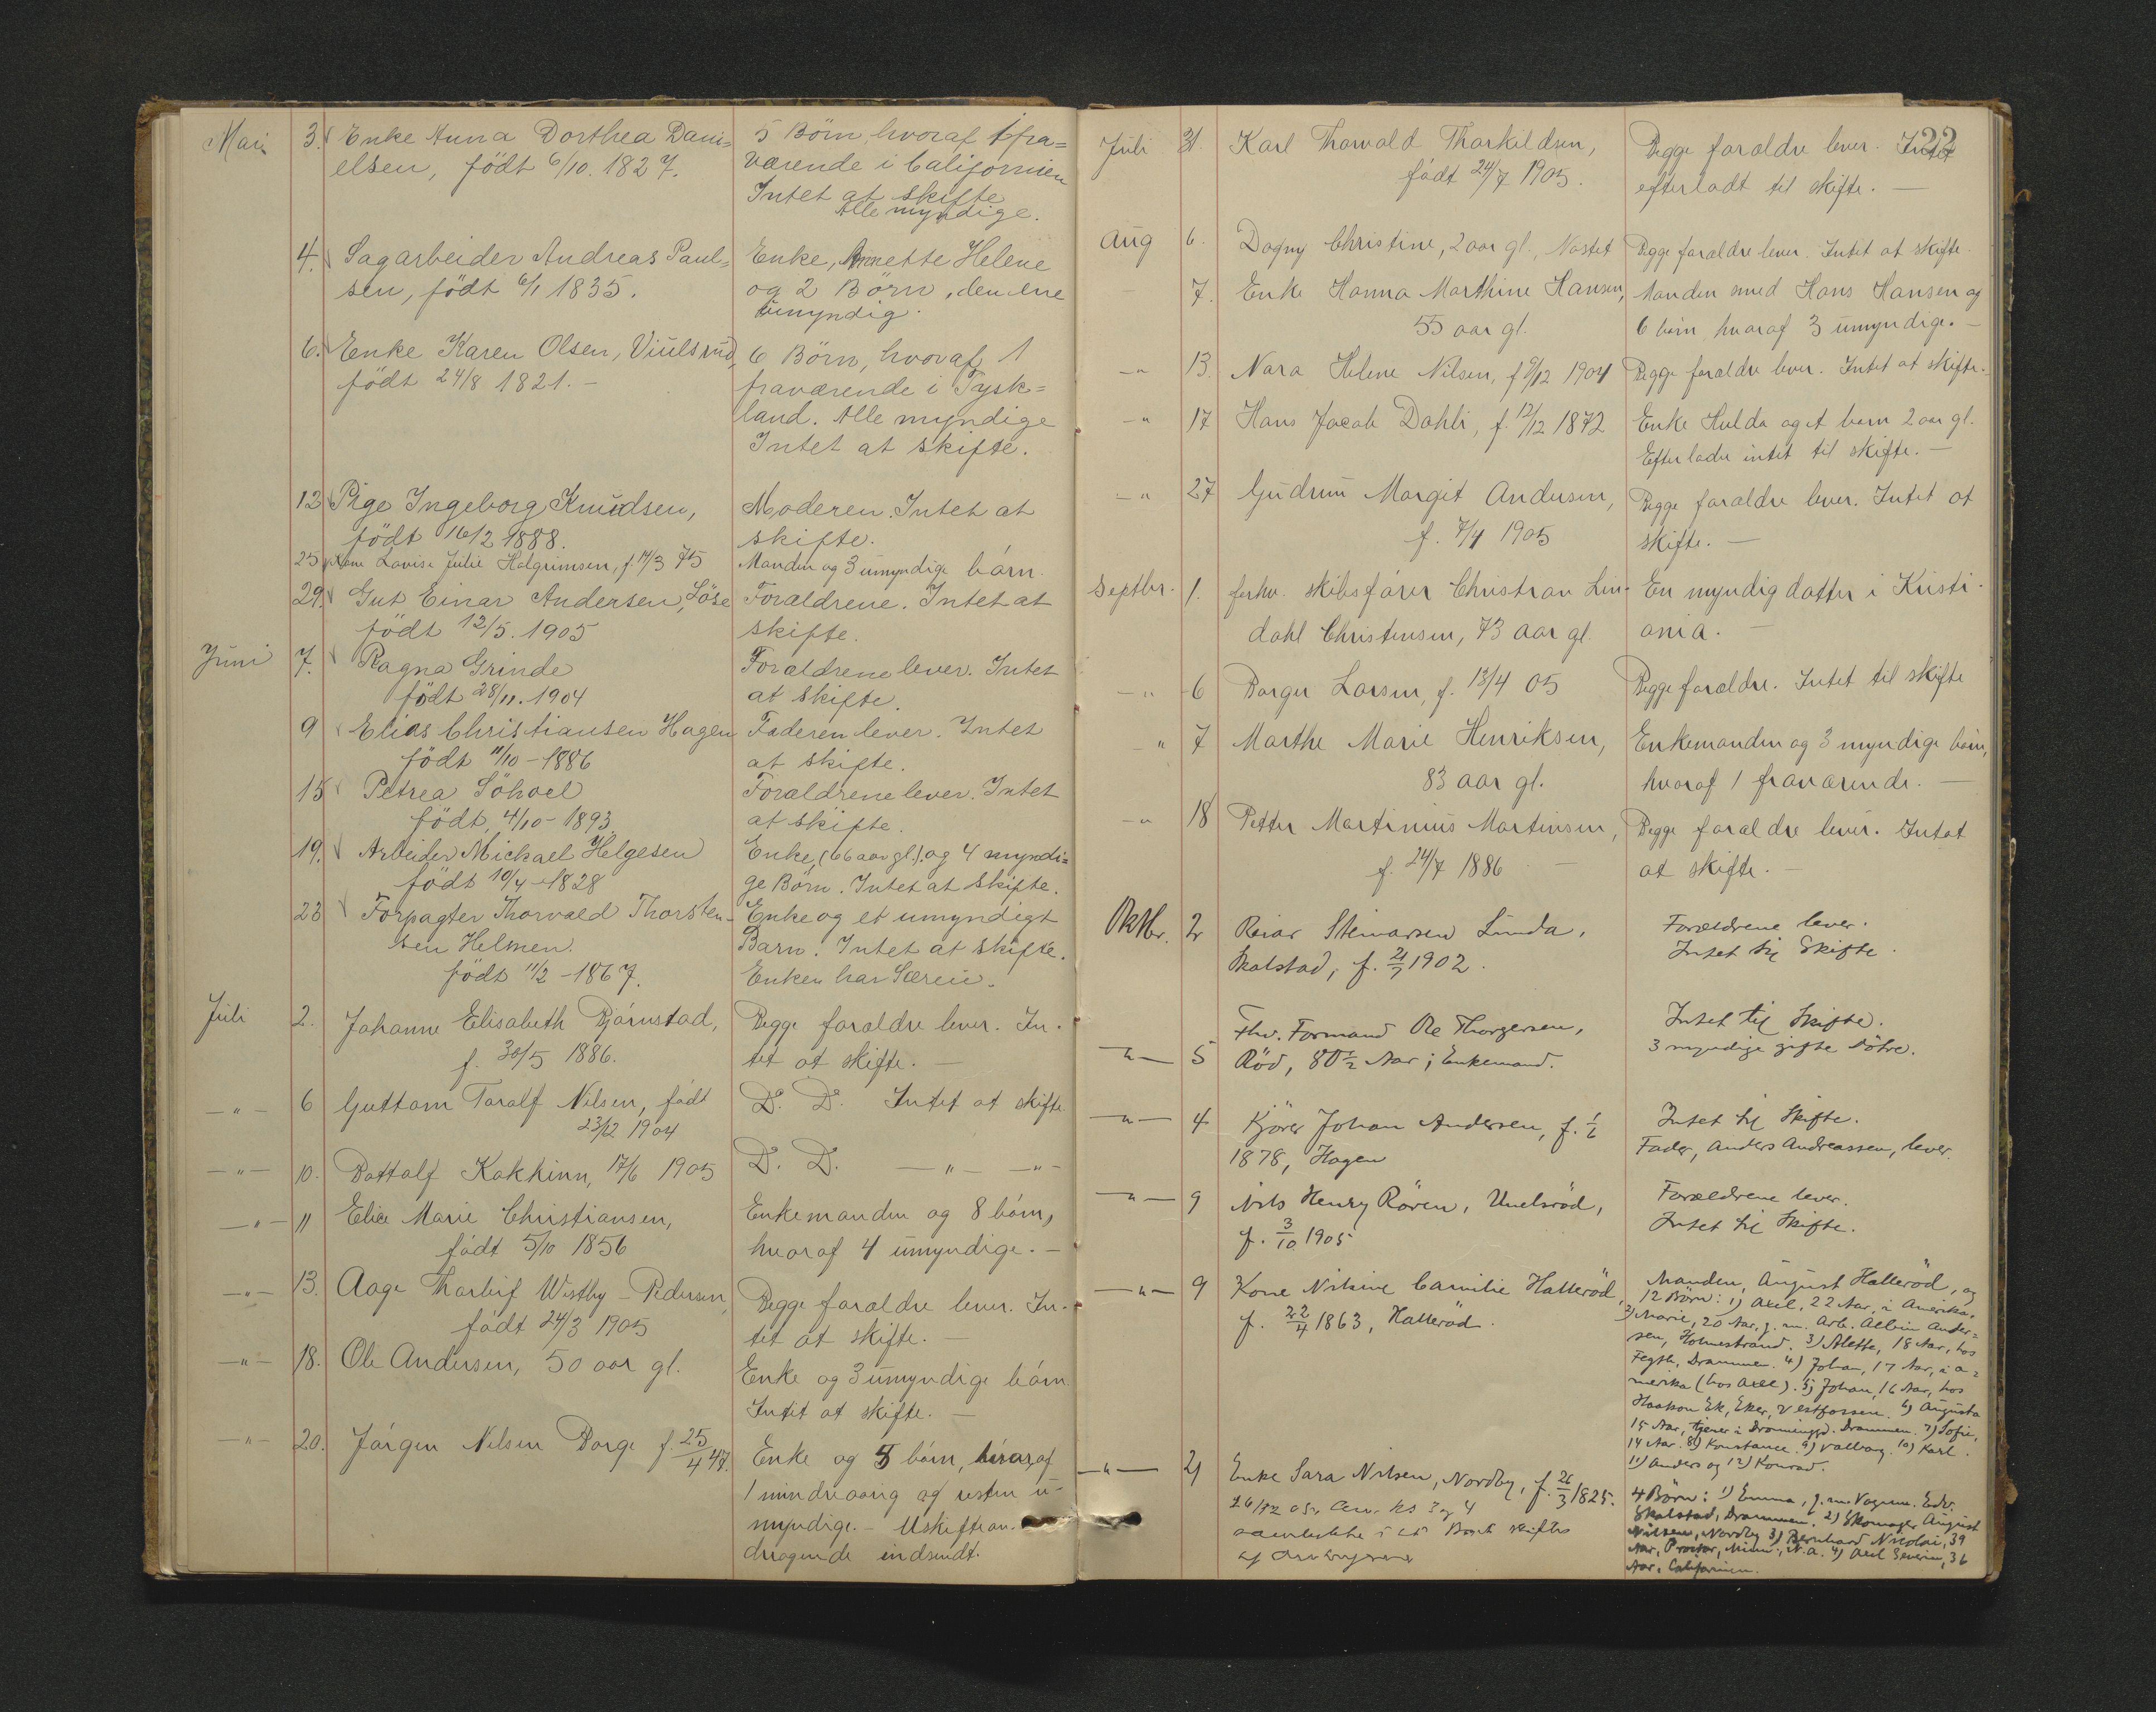 Mai 3. Enke Anna Dorthea Dani=
elsen, födt 6/10. 1827.
5 Börn, hvoraf 1 fra=
værende i Californien
Intet at skifte
Alle myndige.
4. Sagarbeider Andreas Paul=
sen, födt 6/1 1835.
Enke, Annette Helene
og 2 Börn, den ene
umyndig.
6. Enke Karen Olsen, Viulsrud,
födt 24/8 1821. –
6 Börn, hvoraf 1
fraværende i Tysk=
land. Alle myndige
Intet at skifte.
12 Pige Ingeborg Knudsen,
födt 16/2 1888.
Moderen. Intet at
skifte.
25 Kone Lovise Julie Halgrimsen, f. 14/3 75
Manden og 3 umyndige børn.
29. Gut Einar Andersen, Löse
födt 12/5. 1905
Forældrene. Intet at
skifte.
Juni 7. Ragna Grinde
födt 28/11. 1904
Forældrene lever. Intet
at skifte.
9 Elias Christiansen Hagen
födt 11/10 – 1886
Faderen lever. Intet
at skifte.
15 Petrea Söhoel
födt, 4/10 – 1893
Forældrene lever. Intet
at skifte.
19. Arbeider Michael Helgesen
födt 10/4 – 1828
Enke, (66 aar gl.) og 4 myndi=
ge Börn. Intet at skifte.
23 Forpagter Thorvald Thorsten-
sen Helmen.
födt 11/2 – 1867.
Enke og et umyndigt
Barn. Intet at skifte.
Enken har Særeie.
Juli 2. Johanne Elisabeth Bjørnstad,
f. 30/5 1886.
Begge forældre lever. In-
tet at skifte. –
– " – 6 Guttorm Toralf Nilsen, født
23/12 1904
D. D. Intet at skifte
– " – 10. Bottolf Kokkinn, 17/6 1905
D. D. – " – – " –
– " – 11 Elise Marie Christiansen,
født 5/10 1856
Enkemanden og 8 børn,
hvoraf 4 umyndige. –
– " – 13. Aage Thorleif Westby – Pedersen,
født 24/3 1905
Begge forældre lever. In-
tet at skifte. –
– " – 18. Ole Andersen, 50 aar gl.
Enke og 3 umyndige børn.
Intet at skifte. –
– " – 20. Jørgen Nilsen Borge f. 25/4 47.
Enke og 5 børn, hvoraf
1 mindreaarig og resten u-
myndige. – Uskiftean-
dragende indsendt.
22
Juli 31. Karl Thorvald Thorkildsen,
født 24/7 1905.
Begge forældre lever. Intet
efterladt til skifte. –
Aug 6. Dagny Christine, 2 aar gl., Nøstet
Begge forældre lever. Intet at skifte
– 7. Enke Hanna Marthine Hansen,
55 aar gl.
Manden smed Hans Hansen og
6 børn hvoraf 3 umyndige. –
– " 13. Nara Helene Nilsen, f 9/12 1904
Begge forældre lever. Intet at skifte.
– " 17 Hans Jacob Dahli, f. 12/12 1872
Enke Hulda og et barn 2 aar gl.
Efterlader intet til skifte. –
– " 27 Gudrun Margit Andersen,
f. 7/4 1905
Begge forældre lever. Intet at
skifte. –
Septbr. 1. forhv. skibsfører Christian Lin-
dahl Christensen, 73 aar gl.
En myndig datter i Kristi-
ania. –
– " – 6 Borger Larsen, f. 13/4 05
Begge forældre. Intet til skifte
– " 7 Marthe Marie Henriksen,
83 aar gl.
Enkemanden og 3 myndige børn,
hvoraf 1 fraværende. –
– " 18 Petter Martinius Martinsen,
f. 24/7 1886 –
Begge forældre lever. Intet
at skifte. –
Oktbr. 2 Reiar Steinarsen Lunda,
Skalstad, f. 21/7 1902.
Forældrene lever.
Intet til Skifte.
– " – 5 Fhv. Formand Ole Thorgersen,
Röd, 80 1/2 Aar; Enkemand.
Intet til Skifte.
3 myndige gifte Döttre.
– " – 4 Kjörer Johan Andersen, f. 1/6
1878, Hagen
Intet til Skifte.
Fader, Anders Andreassen, lever.
– " – 9 Nils Henry Rören, Unelsröd,
f. 3/10 1905
Forældrene lever.
Intet til Skifte.
– " – 9 Kone Nikine Camilie Halleröd,
f. 22/4 1863, Halleröd.
Manden, August Halleröd, og
12 Börn: 1) Axel, 22 Aar, i Amerika.
2) Marie, 20 Aar, g. m. Arb. Albin Ander=
sen, Holmestrand. 3) Alette, 18 Aar, hos
Fegth, Drammen. 4) Johan, 17 Aar, i A=
merika (hos Axel). 5) Johan, 16 Aar, hos
Haakon Ek, Eker, Vestfossen. 6) Augusta
15 Aar, tjener i Dronninggd. Drammen. 7) Sofie,
14 Aar. 8) Konstance. 9) Valborg. 10) Karl.
11) Anders og 12) Konrad.
– " – 21 Enke Sara Nilsen, Nordby, f. 26/3 1825.
3 og 4
skiftes
4 Börn: 1) Emma, g. m. Vognm. Edv.
Skalstad, Drammen. 2) Skomager August
Nilsen, Nordby 3) Bernhard Nicolai, 39
Aar, Proctor, Minn., N. A. 4) Axel Severin, 36
Aar, Californien.